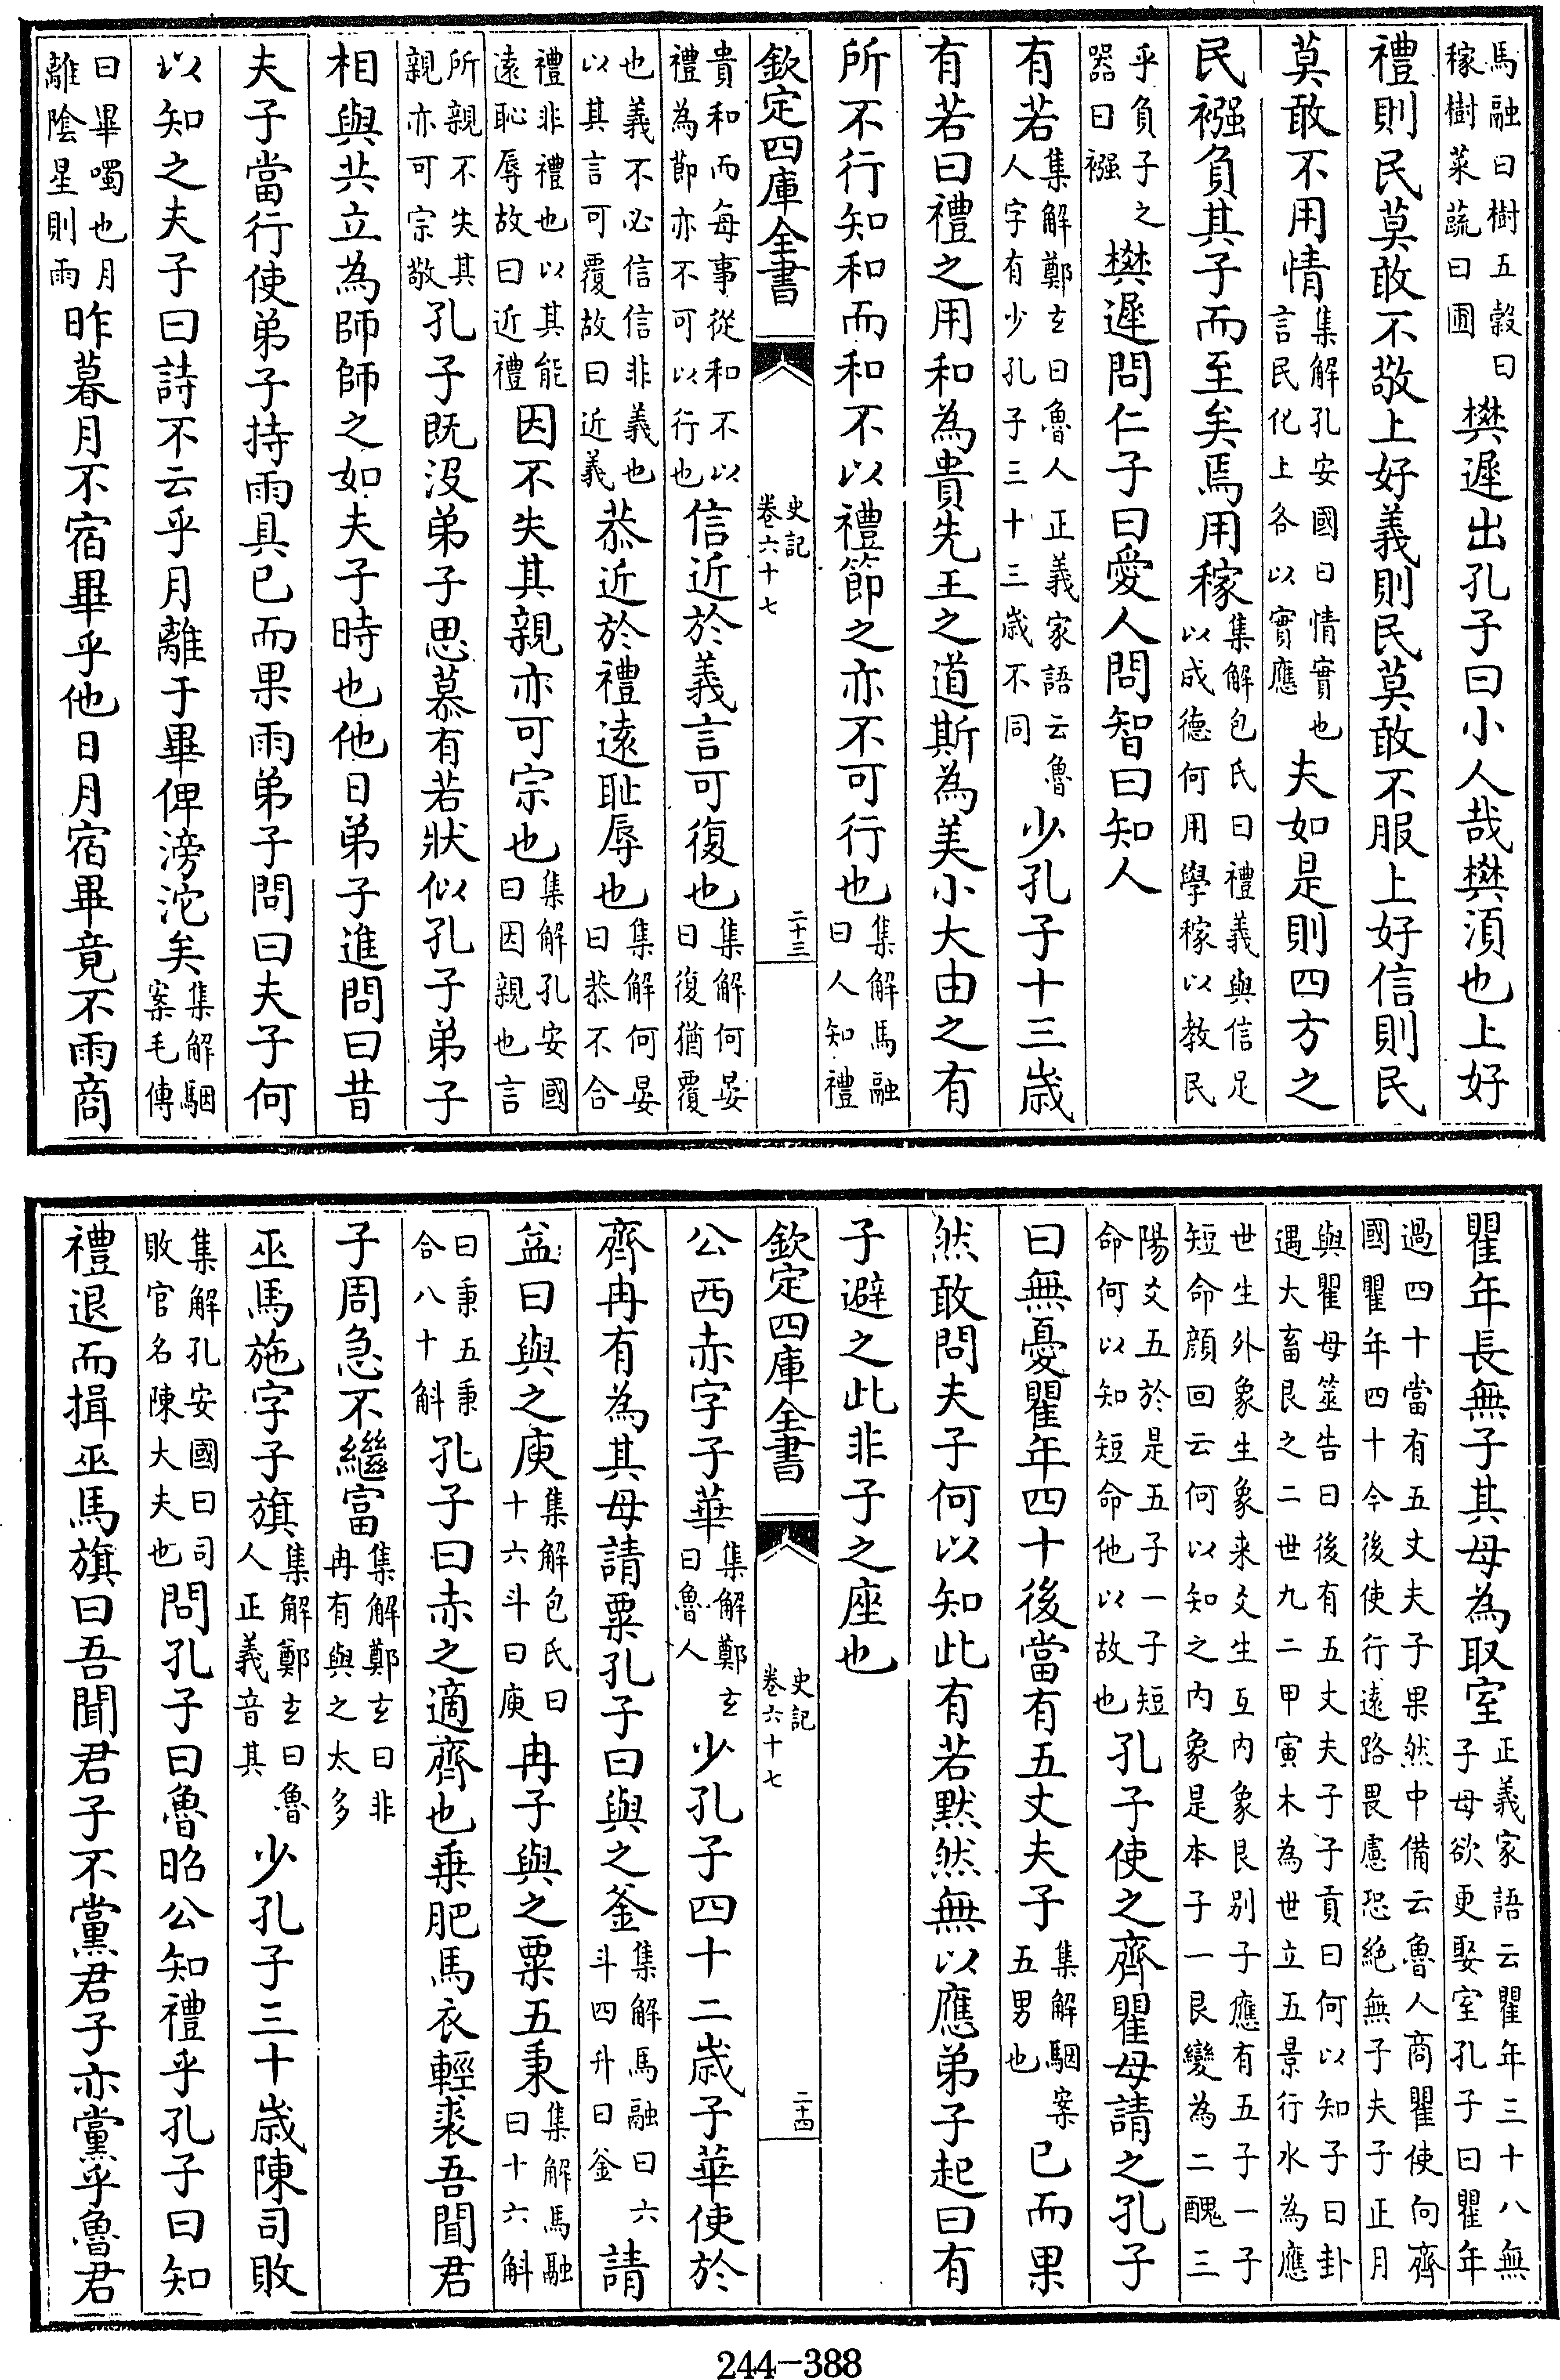 馬融曰樹五穀曰
稼樹菜蔬曰圃
樊遲出孔子曰小人哉樊須也上好
禮則民莫敢不敬上好義則民莫敢不服上好信則民
莫敢不用情
集解孔安國曰情實也
言民化上各以實應
夫如是則四方之
民襁負其子而至矣焉用稼
集解包氏曰禮義與信足
以成德何用學稼以教民
乎負子之
器曰襁
樊遲問仁子曰愛人問智曰知人
有若
集解鄭玄曰魯人 正義家語云魯
人字有少孔子三十三歳不同
少孔子十三歳
有若曰禮之用和為貴先王之道斯為美小大由之有
所不行知和而和不以禮節之亦不可行也
集解馬融
曰人知禮
欽定四庫全書
史記
卷六十七
二十三
貴和而每事從和不以
禮為節亦不可以行也
信近於義言可復也
集解何晏
曰復猶覆
也義不必信信非義也
以其言可覆故曰近義
恭近於禮遠恥辱也
集解何晏
曰恭不合
禮非禮也以其能
遠恥辱故曰近禮
因不失其親亦可宗也
集解孔安國
曰因親也言
所親不失其
親亦可宗敬
孔子既没弟子思慕有若狀似孔子弟子
相與共立為師師之如夫子時也他日弟子進問曰昔
夫子當行使弟子持雨具已而果雨弟子問曰夫子何
以知之夫子曰詩不云乎月離于畢俾滂沱矣
集解駰
案毛傳
曰畢噣也月
離陰星則雨
昨暮月不宿畢乎他日月宿畢竟不雨商
瞿年長無子其母為取室
正義家語云瞿年三十八無
子母欲更娶室孔子曰瞿年
過四十當有五丈夫子果然中備云魯人商瞿使向齊
國瞿年四十今後使行遠路畏慮恐絶無子夫子正月
與瞿母筮告曰後有五丈夫子子貢曰何以知子曰卦
遇大畜艮之二世九二甲寅木為世立五景行水為應
世生外象生象来爻生互内象艮别子應有五子一子
短命顔回云何以知之内象是本子一艮變為二醜三
陽爻五於是五子一子短
命何以知短命他以故也
孔子使之齊瞿母請之孔子
曰無憂瞿年四十後當有五丈夫子
集解駰案
五男也
已而果
然敢問夫子何以知此有若黙然無以應弟子起曰有
子避之此非子之座也
欽定四庫全書
史記
卷六十七
二十四
公西赤字子華
集解鄭玄
曰魯人
少孔子四十二歳子華使於
齊冉有為其母請粟孔子曰與之釜
集解馬融曰六
斗四升曰釜
請
益曰與之庾
集解包氏曰
十六斗曰庾
冉子與之粟五秉
集解馬融
曰十六斛
曰秉五秉
合八十斛
孔子曰赤之適齊也乗肥馬衣輕裘吾聞君
子周急不繼富
集解鄭玄曰非
冉有與之太多
巫馬施字子旗
集解鄭玄曰魯
人正義音其
少孔子三十歳陳司敗
集解孔安國曰司
敗官名陳大夫也
問孔子曰魯昭公知禮乎孔子曰知
禮退而揖巫馬旗曰吾聞君子不黨君子亦黨乎魯君
244-388